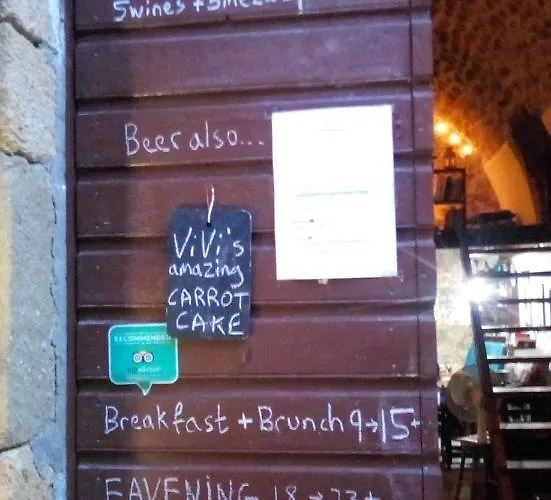 5wines + 5mezze
Beer also...
ViVi's
amazing
CARROT
CAKE
RECOMMENDED
tripadvisor
Breakfast + Brunch 9→15+
EAVENING 18→23+